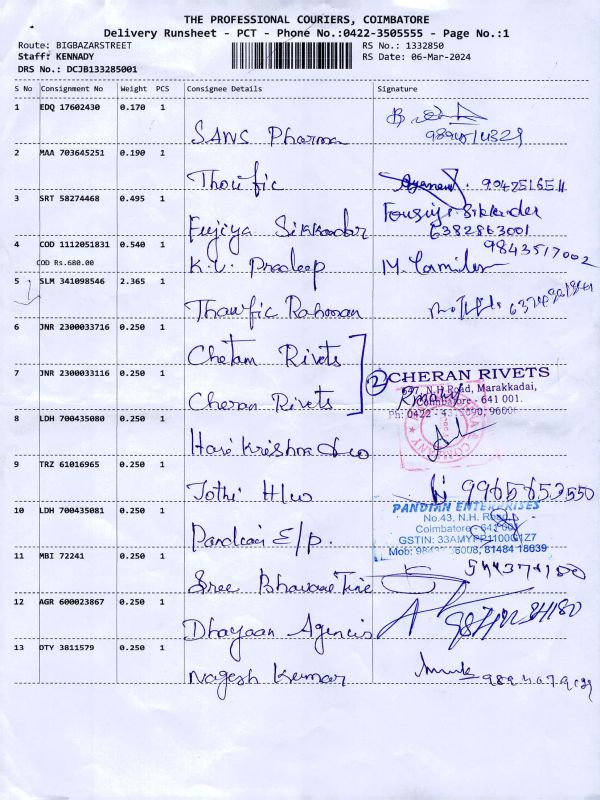 THE PROFESSIONAL COURIERS, COIMBATORE
Delivery Runsheet - PCT - Phone No.:0422-3505555 - Page No.:1
Route: BIGBAZARSTREET RS No.: 1332850
Staff: KENNADY RS Date: 06-Mar-2024
DRS No.: DCJB133285001
S No Consignment No Weight PCS Consignee Details Signature
1 EDQ 17602430 0.170 1 SANS Pharma
2 MAA 703645251 0.190 1 Thoufic 9042516511
3 SRT 58274468 0.495 1 Fujiya Sikkandar
6382863001
4 COD 1112051831 0.540 1 K.V. Pradeep 9843517002
COD Rs.680.00
5 SLM 341098546 2.365 1 Thawfic Rahman
6 JNR 2300033716 0.250 1 Chetam Rivets
7 JNR 2300033116 0.250 1 Cheran Rivets
2 CHERAN RIVETS
N.H Road, Marakkadai,
Coimbatore - 641 001.
Ph: 0422 -
8 LDH 700435080 0.250 1 Hari Krishna & co
9 TRZ 61016965 0.250 1 Jothi H/w 9965653550
10 LDH 700435081 0.250 1 Pandian E/p.
PANDIAN ENTERPRISES
No.43, N.H. Road
Coimbatore - 641 001
GSTIN: 33AMYPP1100G1Z7
Mob: 81484 18639
11 MBI 72241 0.250 1 Sree Bhavani Tine
12 AGR 600023867 0.250 1 Dhayaan Agencis
13 DTY 3811579 0.250 1 Nagesh Kumar